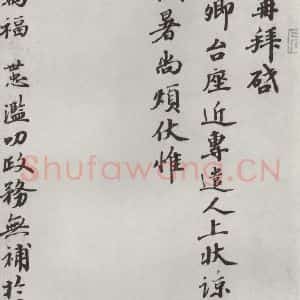 再拜啓
卿台座近專遣人上狀諒
暑尚煩伏惟
為福 濫叨政務無補於
Shufawang.CN